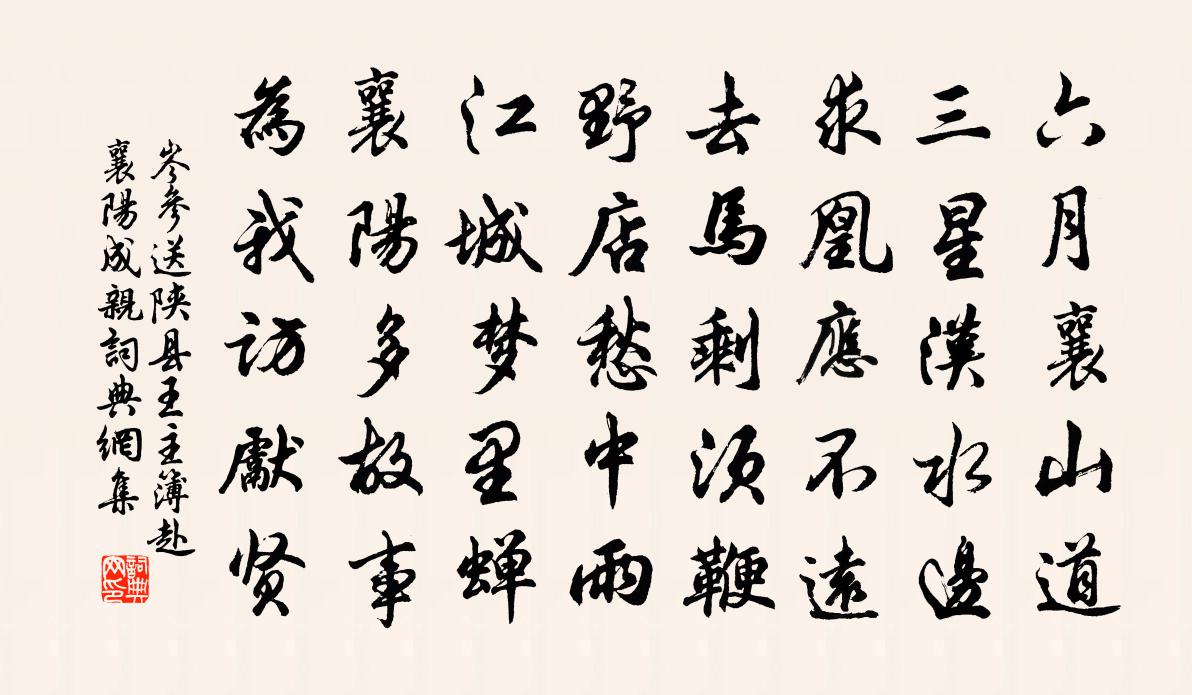 六月襄山道
三星漢水邊
求凰應不遠
去馬剩須鞭
野店愁中雨
江城梦里蝉
襄陽多故事
為我訪獻贤
岑參送陝县王主簿赴
襄陽成親詞典網集
詞典
网印